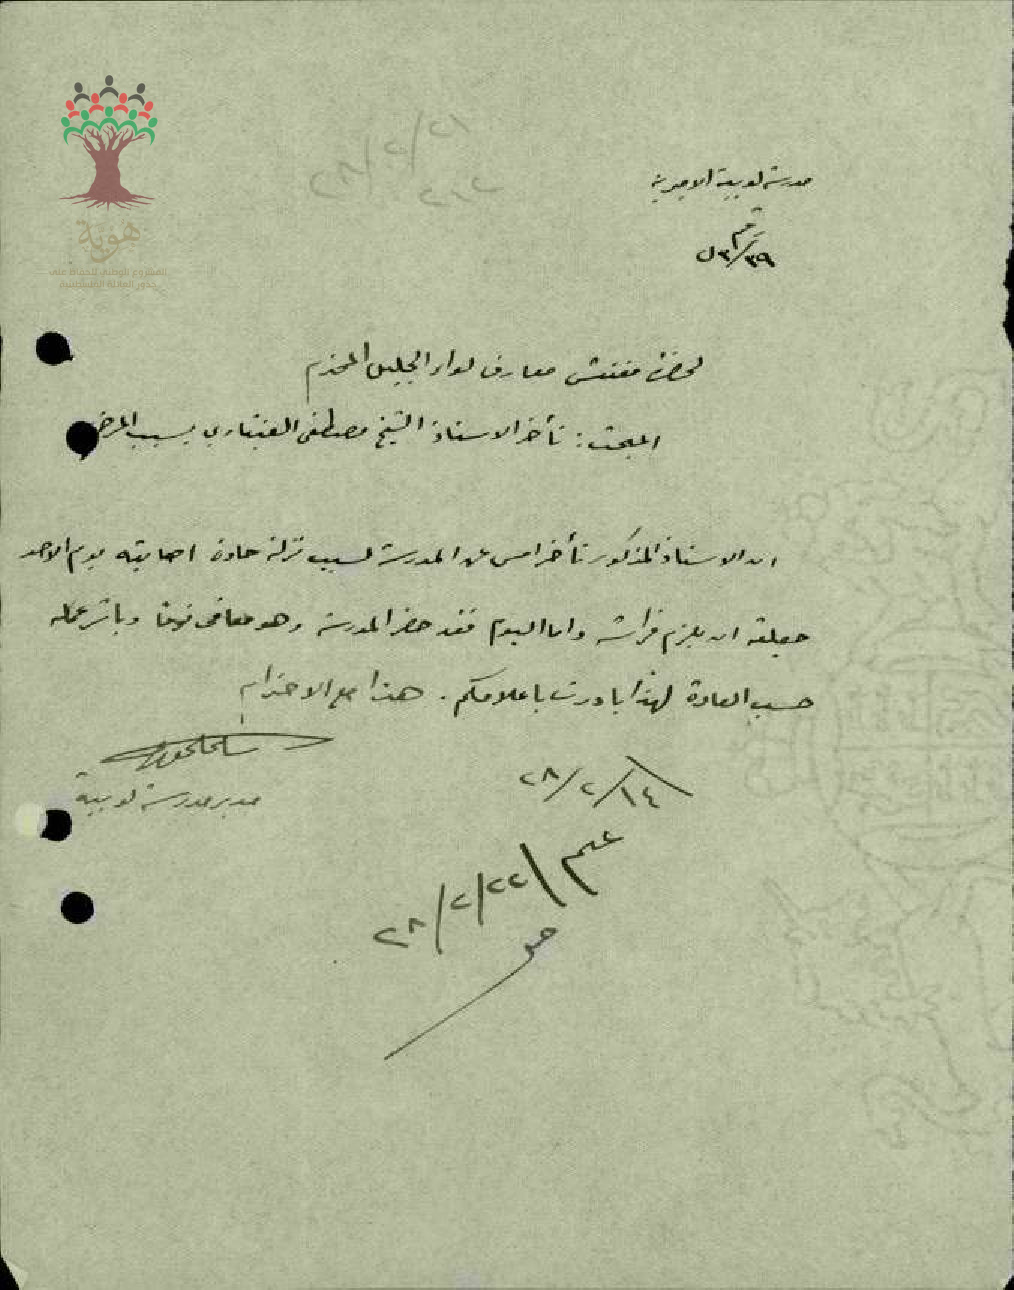 هوية
المشروع الوطني للحفاظ على
جذور العائلة الفلسطينية
مدرسة لوبية الاميرية
رقم
ل ٣/٣٩
لحضرة مفتش معارف لواء الجليل المحترم
المبحث: تأخر الاستاذ الشيخ مصطفى بسبب المرض
ان الاستاذ المذكور تأخر امس عن المدرسة بسبب نزلة حادة اصابته يوم الاحد
جعلته ان يلزم فراشه واما اليوم فقد حضر المدرسة وهو معافى وباشر عمله
حسب العادة لهذا بادرت باعلامكم. هذا مع الاحترام
مدير مدرسة لوبية
٢٨/٢/١٤
٢٨/٢/٢٢